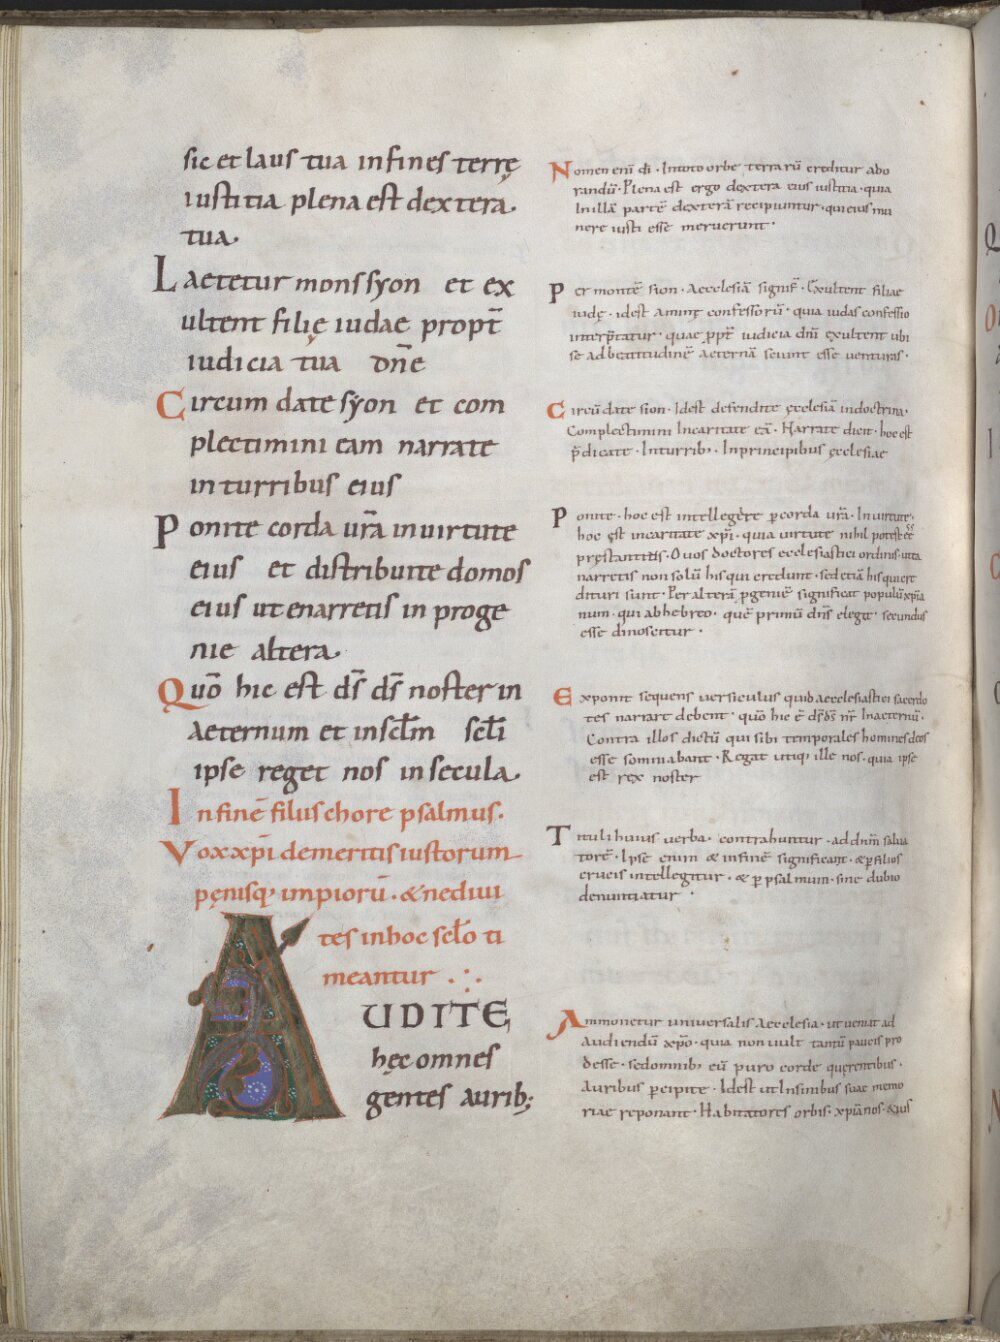 sic et laus tua in fines terrę
iustitia plena est dextera
tua.
Laetetur mons syon et ex
ultent filię iudae propt̄
iudicia tua dn̄e
Circum date syon et com
plectimini eam narrate
in turribus eius
Ponite corda ur̄a in uirtute
eius et distribuite domos
eius ut enarretis in proge
nie altera.
Quō hic est ds̄ ds̄ noster in
aeternum et in scl̄m scl̄i
ipse reget nos in secula.
In finē filus chore psalmus.
Vox xp̄i de meritis iustorum
pęnisq; impiorū. & ne diui
tes in hoc scl̄o ti
meantur
AUDITE
hęc omnes
gentes aurib;
Nomen enī dī. In toto orbe terrarū creditur ado
randū. Plena est ergo dextera eius iustitia. quia
In illā partē dexterā recipiuntur. qui eius mu
nere iusti esse meruerunt.
Per montē sion. Aecclesiā signif̄. Exultent filiae
iudę. idest animę confessorū. quia iudas confessio
interp̄tatur. quae ꝓpt̄ iudicia dn̄i exultent ubi
se ad beatitudinē aeternā sciunt esse uenturas.
Circū date sion. Idest defendite ęcclesiā in doctrina.
Complectimini In caritate eā. Narrate dicit. hoc est
p̄dicate. In turrib;. In principibus ęcclesiae
Ponite. hoc est intellegere p̱ corda ur̄a. In uirtute.
hoc ęst in caritate xp̄i. quia uirtute nihil potest ēē
pręstantius. O uos doctores ecclesiastici ordinis. ut ita
narretis non solū his qui credunt. sed etiā his qui cre
dituri sunt. Per alterā p̱geniē significat populū xp̄ia
num. qui ab hebreo. quē primū dn̄s elegit. secundus
esse dinoscitur.
Exponit sequens uersiculus quid aecclesiastici sacerdo
tes narrare debent. quō hic ē ds̄ ds̄ nr̄ In aeternū.
Contra illos dictū qui sibi temporales homines deos
esse somniabant. Regat utiq; ille nos. quia ipse
est rex noster
Tituli huius uerba. contrahuntur. ad dn̄m salua
torē. Ipse enim & in finē significant. & p̱ filios
crucis intellegitur. & p̱ psalmum. sine dubio
denuntiatur.
Ammonetur uniuersalis Aecclesia. ut ueniat ad
audiendū xp̄o. quia non uult tantū paucis pro
desse. sed omnib; eū puro corde querentibus.
Auribus p̱cipite. Idest ut In sinibus suae memo
riae reponant. Habitatores orbis. xp̄ianos. & ius